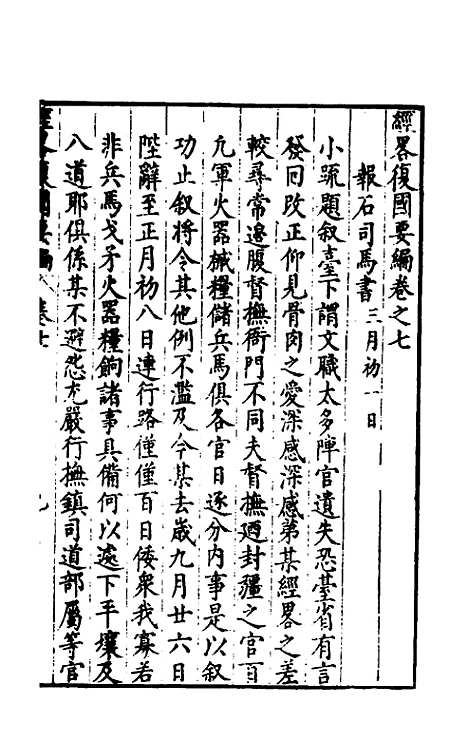 經畧復國要編卷之七
報石司馬書三月初一日
小疏題敘臺下謂文職太多陣官遺失恐臺省有言
發回改正仰見骨肉之愛深感深感第某經畧之差
較尋常邊腹督撫衙門不同夫督撫廼封疆之官百
凡軍火器械糧儲兵馬俱各官日逐分內事是以敘
功止敘將令其他例不濫及今某去歲九月廿六日
陛辭至正月初八日連行路僅僅百日倭眾我寡若
非兵馬戈矛火器糧餉諸事具備何以遽下平壤及
八道耶俱係某不避怨尤嚴行撫鎮司道部屬等官
經畧復國要編 卷七